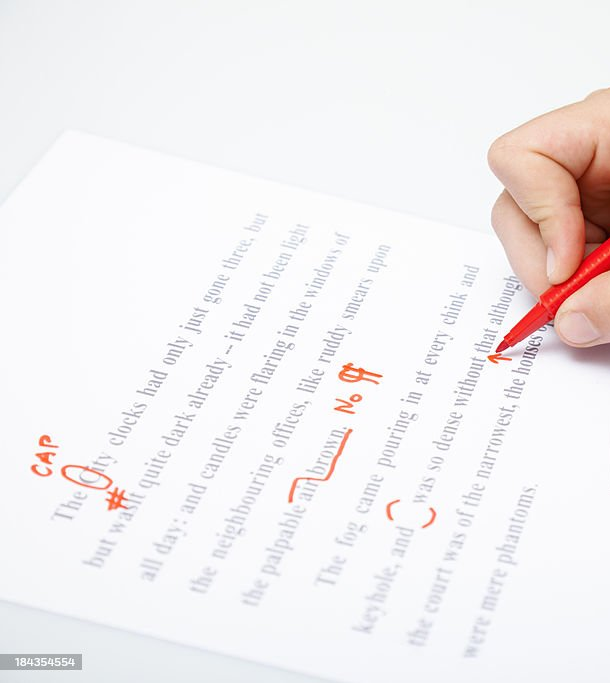 CAP
The City clocks had only just gone three, but
#
but wasit quite dark already – it had not been light
all day: and candles were flaring in the windows of
the neighbouring offices, like ruddy smears upon
the palpable air brown. No ¶
The fog came pouring in at every chink and
keyhole, and was so dense without that although
the court was of the narrowest, the houses
were mere phantoms.
184354554